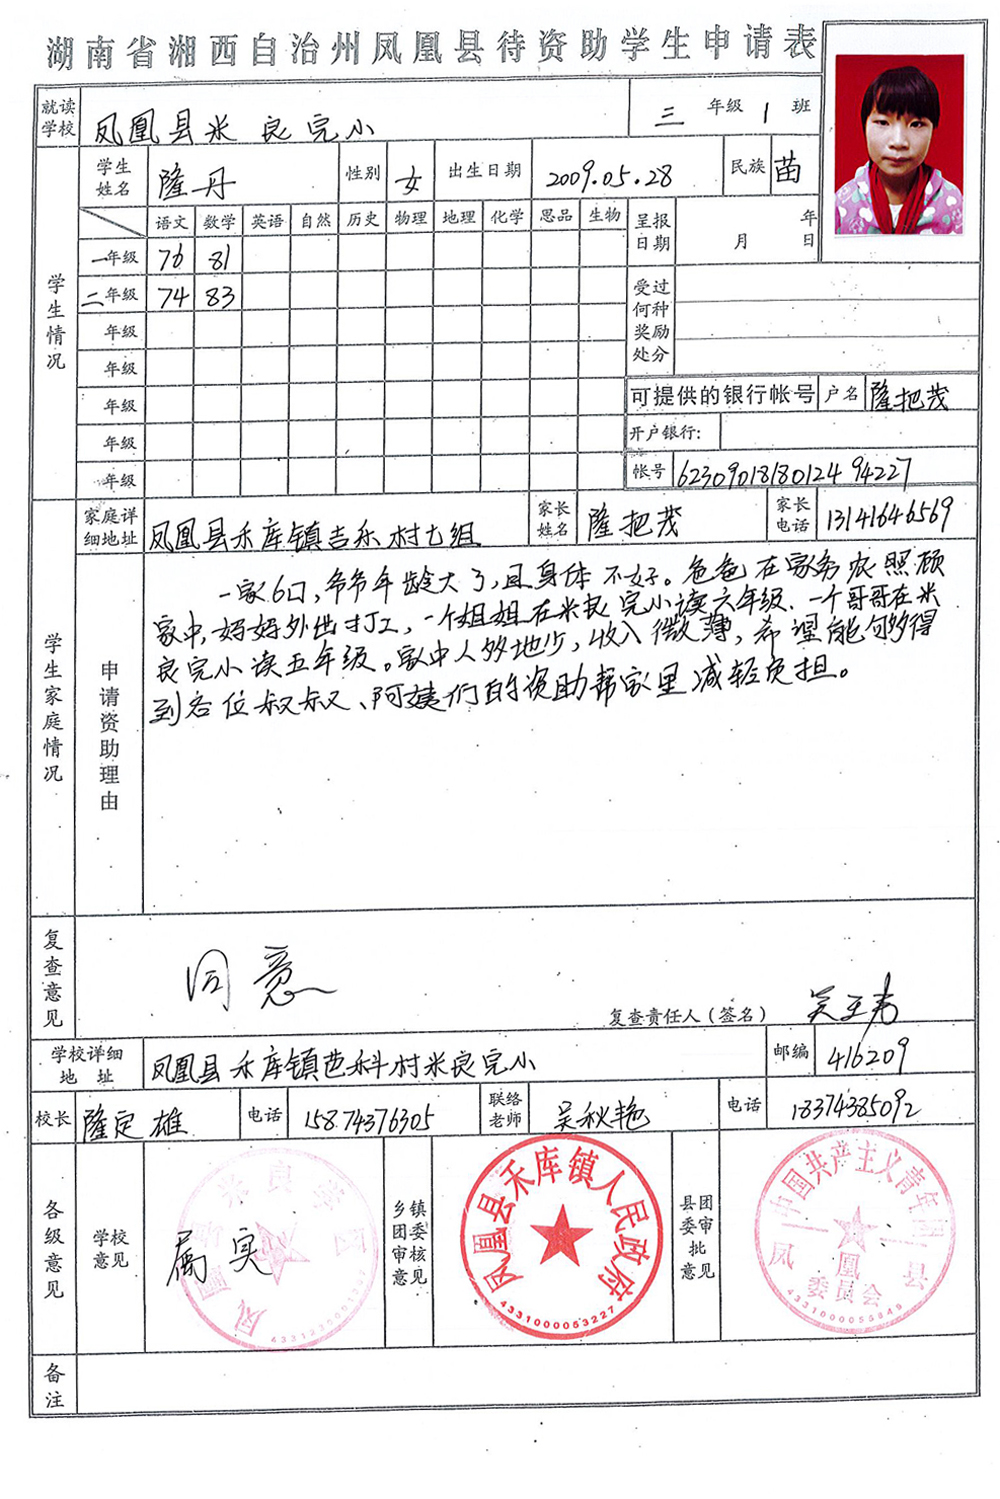 湖南省湘西自治州凤凰县待资助学生申请表
就读学校 凤凰县米良完小 三年级 1 班
学生姓名 隆丹 性别 女 出生日期 2009.05.28 民族 苗
学生情况
语文 数学 英语 自然 历史 物理 地理 化学 思品 生物 呈报日期 年 月 日
一年级 76 81
二年级 74 83 受过何种奖励处分
年级
年级
年级 可提供的银行帐号 户名 隆把茂
年级 开户银行:
年级 帐号 6230901818012494227
家庭详细地址 凤凰县禾库镇吉乐村七组 家长姓名 隆把茂 家长电话 13141646569
学生家庭情况
申请资助理由
一家6口,爷爷年龄大了,且身体不好。爸爸在家务农照顾
家中,妈妈外出打工,一个姐姐在米良完小读六年级、一个哥哥在米
良完小读五年级。家中人多地少,收入微薄,希望能够得
到各位叔叔、阿姨们的资助帮家里减轻负担。
复查意见 同意 复查责任人(签名)
学校详细地址 凤凰县禾库镇芭科村米良完小 邮编 416209
校长 隆定雄 电话 15874376305 联络老师 吴秋艳 电话 18374385092
各级意见 学校意见 属实 乡镇团委审核意见 县团委审批意见
凤凰县禾库镇人民政府
4331000053227
中国共产主义青年团凤凰县
委员会
4331000055849
备注